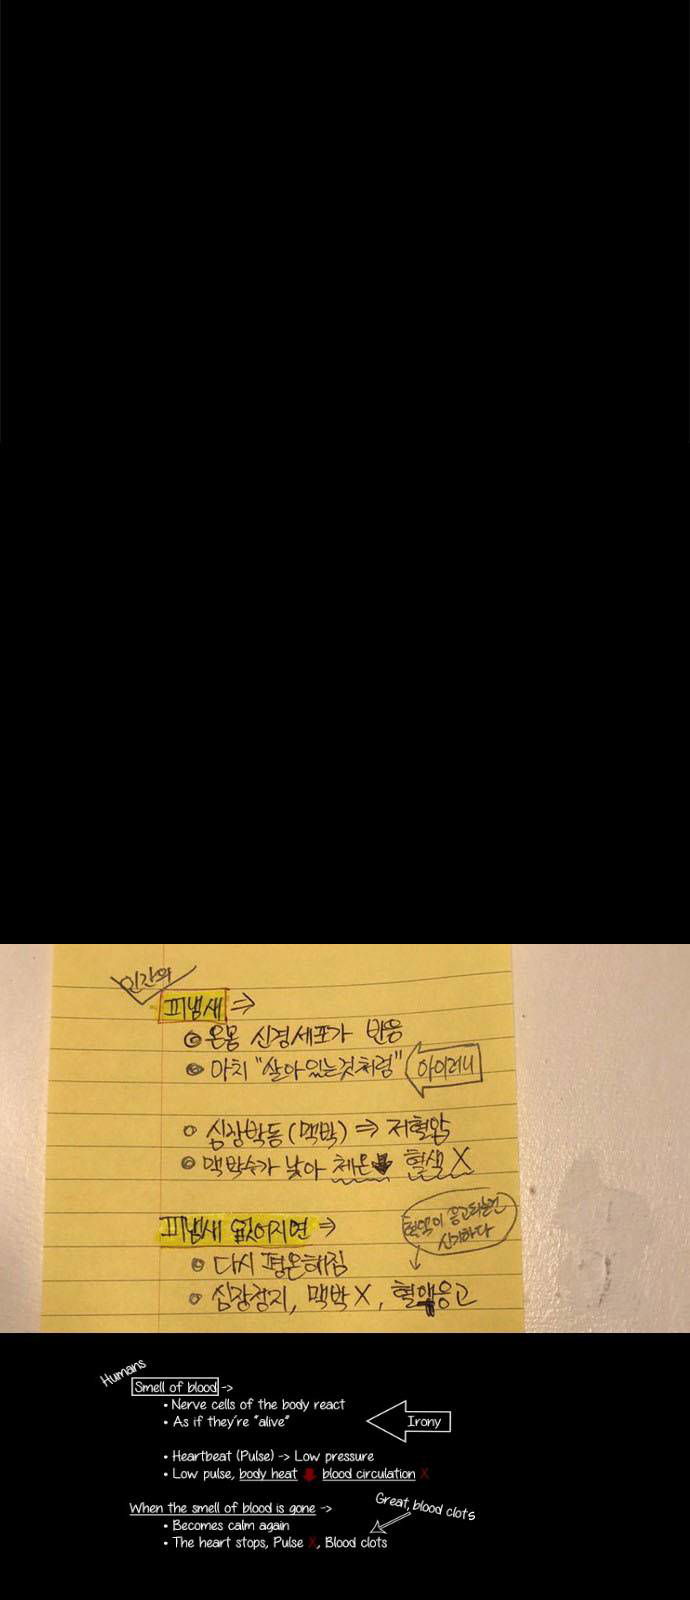 인간의
피냄새 ⇒
온몸 신경세포가 반응
마치 "살아있는것처럼" 아이러니
심장박동(맥박) ⇒ 저혈압
맥박수가 낮아 체온⬇ 혈색 X
피냄새 없어지면 ⇒
혈액이 응고되는건
신기하다
다시 평온해짐
심장정지, 맥박 X, 혈액응고
Humans
Smell of blood ->
• Nerve cells of the body react
• As if they're "alive" Irony
• Heartbeat (Pulse) -> Low pressure
• Low pulse, body heat ⬇ blood circulation X
When the smell of blood is gone -> Great, blood clots
• Becomes calm again
• The heart stops, Pulse X, Blood clots